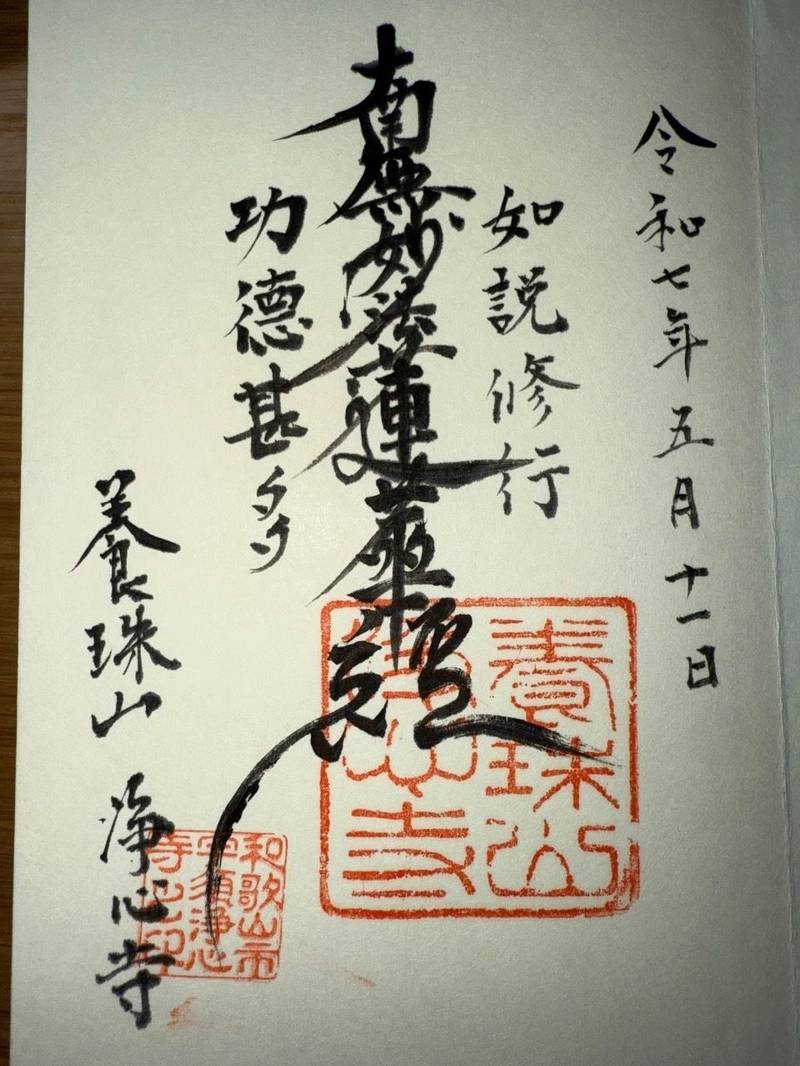 令和七年五月十一日
如説修行
南無妙法蓮華経
功徳甚多
養珠山 浄心寺
養珠山
浄心寺
和歌山市
宇須浄心
寺之印